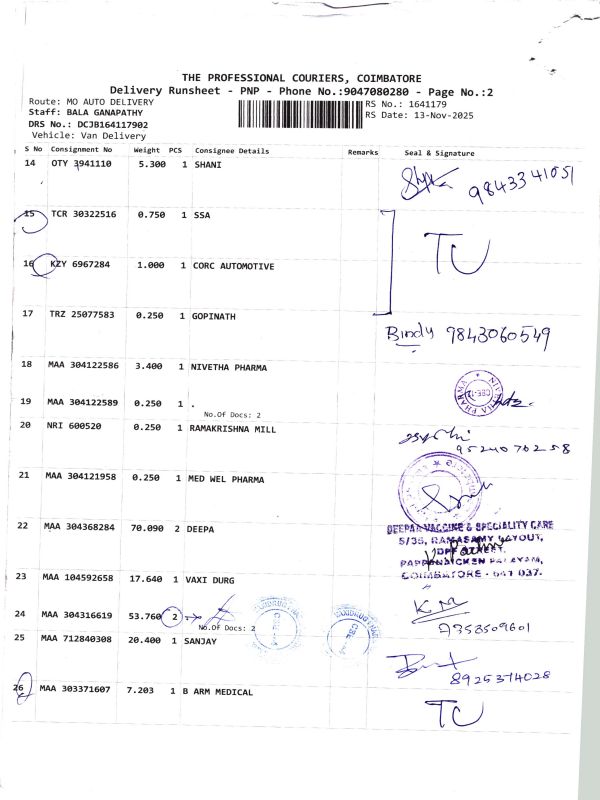 THE PROFESSIONAL COURIERS, COIMBATORE
Delivery Runsheet - PNP - Phone No.:9047080280 - Page No.:2
Route: MO AUTO DELIVERY
RS No.: 1641179
Staff: BALA GANAPATHY
RS Date: 13-Nov-2025
DRS No.: DCJB164117902
Vehicle: Van Delivery
S No Consignment No Weight PCS Consignee Details Remarks Seal & Signature
14 OTY 3941110 5.300 1 SHANI
9843341051
15 TCR 30322516 0.750 1 SSA
TU
16 KZY 6967284 1.000 1 CORC AUTOMOTIVE
17 TRZ 25077583 0.250 1 GOPINATH
Bindy 9843060549
18 MAA 304122586 3.400 1 NIVETHA PHARMA
NIVETHA PHARMA
19 MAA 304122589 0.250 1 .
No.Of Docs: 2
20 NRI 600520 0.250 1 RAMAKRISHNA MILL
9524070258
21 MAA 304121958 0.250 1 MED WEL PHARMA
22 MAA 304368284 70.090 2 DEEPA
DEEPAA VACCINE & SPECIALITY CARE
5/35, RAMASAMY LAYOUT,
STREET,
PAPPANAICKEN PALAYAM,
COIMBATORE - 641 037.
23 MAA 104592658 17.640 1 VAXI DURG
24 MAA 304316619 53.760 2
No.Of Docs: 2
25 MAA 712840308 20.400 1 SANJAY
8925374028
26 MAA 303371607 7.203 1 B ARM MEDICAL
TU